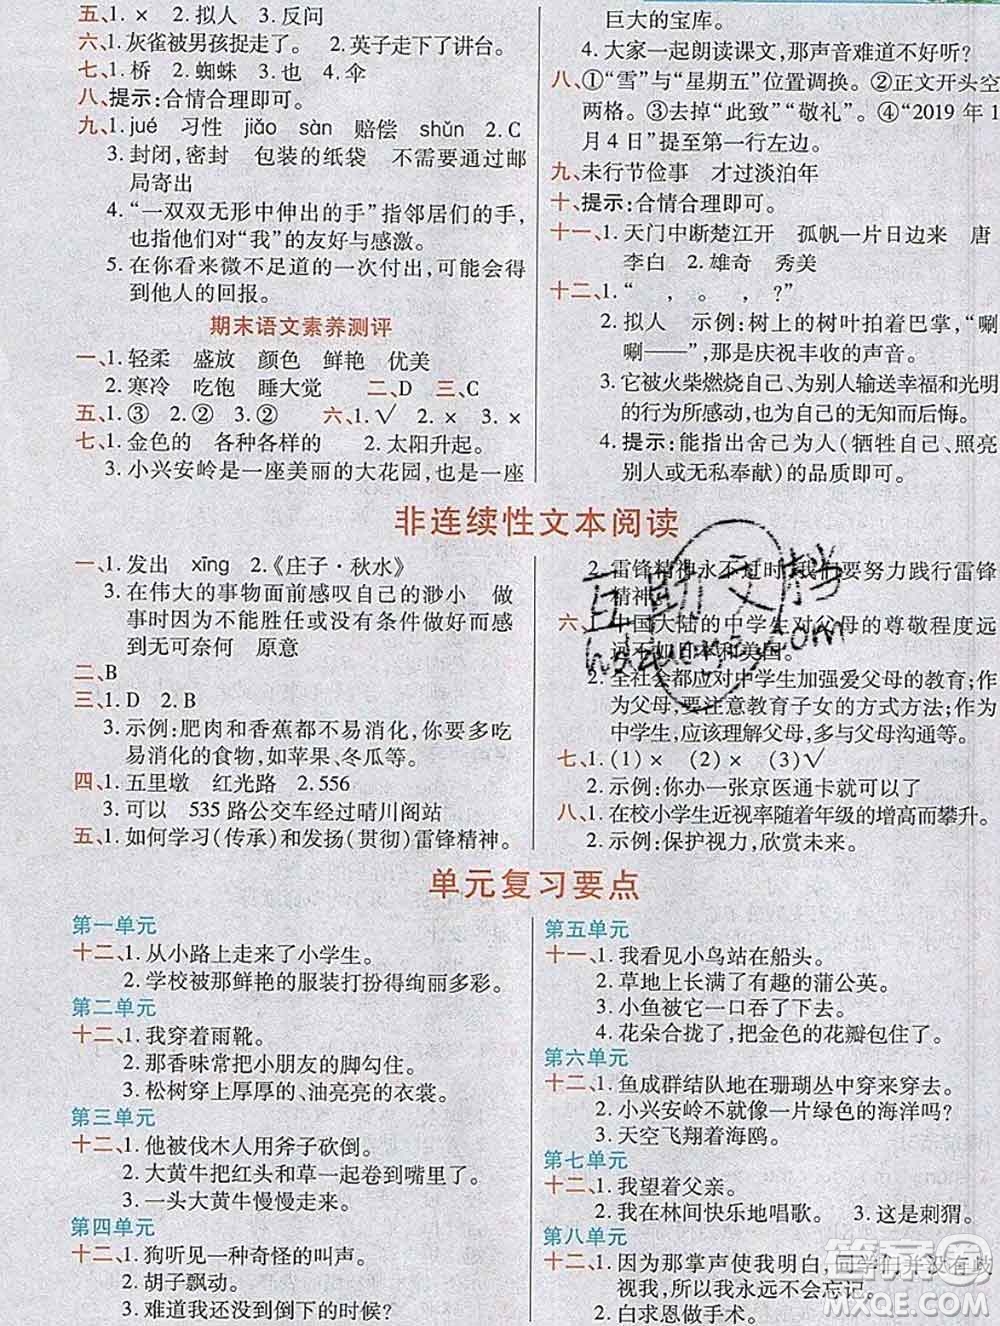 五、1. × 2. 拟人 3. 反问
六、1. 灰雀被男孩捉走了。 2. 英子走下了讲台。
七、1. 桥 2. 蜘蛛 3. 也 4. 伞
八、提示:合情合理即可。
九、1. jué 习性 jiǎo sàn 赔偿 shǔn 2. C
3. 封闭,密封 包装的纸袋 不需要通过邮
局寄出
4. “一双双无形中伸出的手”指邻居们的手,
也指他们对“我”的友好与感激。
5. 在你看来微不足道的一次付出,可能会得
到他人的回报。
期末语文素养测评
一、1. 轻柔 盛放 颜色 鲜艳 优美
2. 寒冷 吃饱 睡大觉 二、D 三、C
五、1. ③ 2. ② 3. ② 六、1. √ 2. × 3. ×
七、1. 金色的 各种各样的 2. 太阳升起。
3. 小兴安岭是一座美丽的大花园,也是一座
巨大的宝库。
4. 大家一起朗读课文,那声音难道不好听?
八、①“雪”与“星期五”位置调换。②正文开头空
两格。③去掉“此致”“敬礼”。④“2019 年 1
月 4 日”提至第一行左边。
九、未行节俭事 才过淡泊年
十、提示:合情合理即可。
十一、1. 天门中断楚江开 孤帆一片日边来 唐
李白 2. 雄奇 秀美
十二、1. “ , 。 , ?”
2. 拟人 示例:树上的树叶拍着巴掌,“唰
唰——”,那是庆祝丰收的声音。
3. 它被火柴燃烧自己、为别人输送幸福和光明
的行为所感动,也为自己的无知而后悔。
4. 提示:能指出舍己为人(牺牲自己、照亮
别人或无私奉献)的品质即可。
非连续性文本阅读
一、1. 发出 xīng 2.《庄子·秋水》
3. 在伟大的事物面前感叹自己的渺小 做
事时因力不能胜任或没有条件做好而感
到无可奈何 原意
二、B
三、1. D 2. B
3. 示例:肥肉和香蕉都不易消化,我要多吃
易消化的食物,如苹果、冬瓜等。
四、1. 五里墩 红光路 2. 556
3. 可以 535 路公交车经过晴川阁站
五、1. 如何学习(传承)和发扬(贯彻)雷锋精神。
2. 雷锋精神永不过时,我们要努力践行雷锋
精神。
六、1. 中国大陆的中学生对父母的尊敬程度远
远不如日本和美国。
2. 全社会都应对中学生加强爱父母的教育;作
为父母,要注意教育子女的方式方法;作为
中学生,应该理解父母,多与父母沟通等。
七、1. (1) × (2) × (3)√
2. 示例:你办一张京医通卡就可以了。
八、1. 在校小学生近视率随着年级的增高而攀升。
2. 示例:保护视力,欣赏未来。
互动文档
hdzuoye.com
单元复习要点
第一单元
十二、1. 从小路上走来了小学生。
2. 学校被那鲜艳的服装打扮得绚丽多彩。
第二单元
十二、1. 我穿着雨靴。
2. 那香味常常把小朋友的脚勾住。
3. 松树穿上厚厚的、油亮亮的衣裳。
第三单元
十二、1. 他被伐木人用斧子砍倒。
2. 大黄牛把红头和草一起卷到嘴里。
3. 一头大黄牛慢慢走来。
第四单元
十二、1. 狗听见一种奇怪的叫声。
2. 胡子飘动。
3. 难道我还没到倒下的时候?
第五单元
十一、1. 我看见小鸟站在船头。
2. 草地上长满了有趣的蒲公英。
3. 小鱼被它一口吞了下去。
4. 花朵合拢了,把金色的花瓣包住了。
第六单元
十二、1. 鱼成群结队地在珊瑚丛中穿来穿去。
2. 小兴安岭难道不像一片绿色的海洋吗?
3. 天空飞翔着海鸥。
第七单元
十二、1. 我望着父亲。
2. 我在林间快乐地唱歌。 3. 这是刺猬。
第八单元
十二、1. 因为那掌声使我明白,同学们并没有歧
视我,所以我永远不会忘记。
2. 白求恩做手术。
答案圈
MXQE.COM